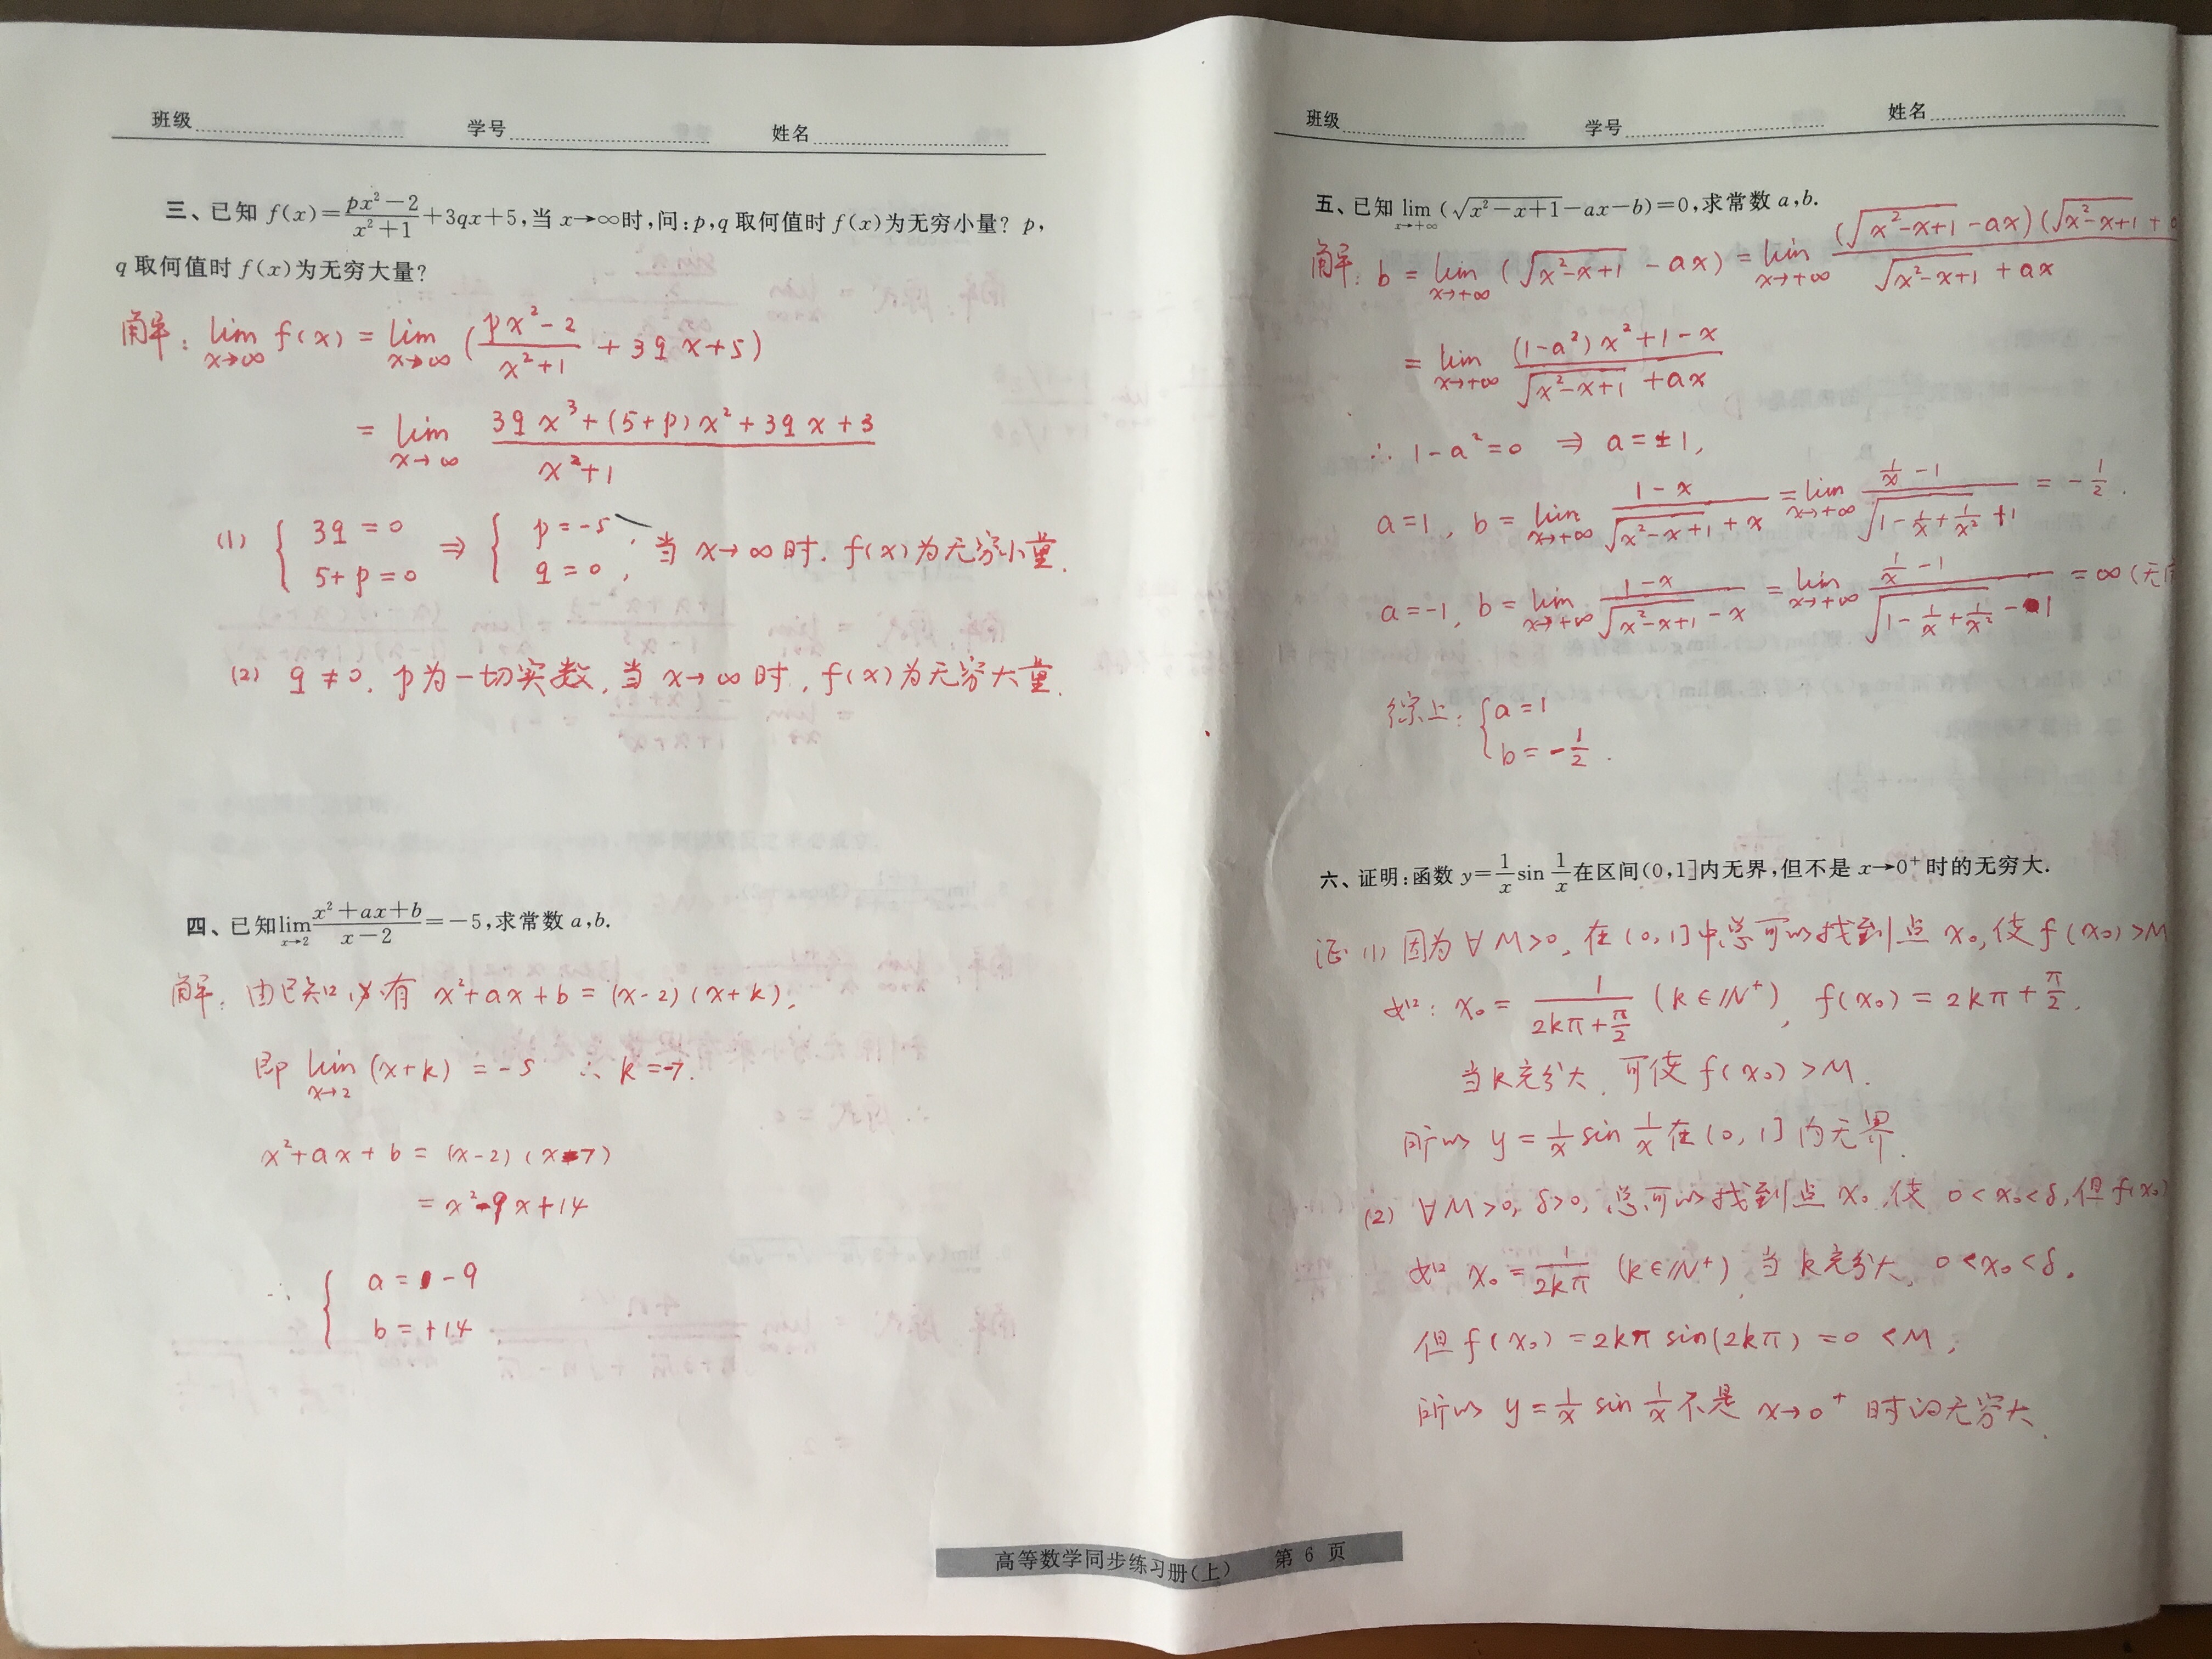 班级 学号 姓名
三、已知 f(x)=\frac{px²-2}{x²+1}+3qx+5,当 x→∞时,问:p,q 取何值时 f(x)为无穷小量? p,
q 取何值时 f(x)为无穷大量?
解: \lim_{x→∞} f(x) = \lim_{x→∞} (\frac{px²-2}{x²+1} + 3qx+5)
= \lim_{x→∞} \frac{3qx³+(5+p)x²+3qx+3}{x²+1}
(1) { 3q=0 5+p=0 ⇒ { p=-5, q=0, 当 x→∞时. f(x)为无穷小量.
(2) q≠0. p为一切实数, 当 x→∞时, f(x)为无穷大量.
四、已知\lim_{x→2}\frac{x²+ax+b}{x-2}=-5,求常数 a,b.
解. 由已知必有 x²+ax+b = (x-2)(x+k),
即 \lim_{x→2} (x+k) = -5 ∴ k=-7.
x²+ax+b = (x-2)(x-7)
= x²-9x+14
∴ { a = -9
b = +14
班级 学号 姓名
五、已知 \lim_{x→+∞}(\sqrt{x²-x+1}-ax-b)=0,求常数 a,b.
解: b = \lim_{x→+∞} (\sqrt{x²-x+1} - ax) = \lim_{x→+∞} \frac{(\sqrt{x²-x+1} - ax)(\sqrt{x²-x+1} +}{\sqrt{x²-x+1} + ax}
= \lim_{x→+∞} \frac{(1-a²)x²+1-x}{\sqrt{x²-x+1} + ax}
∴ 1-a²=0 ⇒ a=±1,
a=1, b = \lim_{x→+∞} \frac{1-x}{\sqrt{x²-x+1}+x} = \lim_{x→+∞} \frac{\frac{1}{x}-1}{\sqrt{1-\frac{1}{x}+\frac{1}{x²}}+1} = -\frac{1}{2}.
a=-1, b = \lim_{x→+∞} \frac{1-x}{\sqrt{x²-x+1}-x} = \lim_{x→+∞} \frac{\frac{1}{x}-1}{\sqrt{1-\frac{1}{x}+\frac{1}{x²}}-1} = ∞ (无
综上: { a=1
b=-\frac{1}{2}.
六、证明:函数 y=\frac{1}{x}sin\frac{1}{x}在区间(0,1]内无界,但不是 x→0⁺时的无穷大.
证 (1) 因为 ∀M>0, 在(0,1]中总可以找到点 x₀, 使 f(x₀)>M
如: x₀ = \frac{1}{2kπ+\frac{π}{2}} (k∈N⁺), f(x₀) = 2kπ+\frac{π}{2}.
当k充分大, 可使 f(x₀)>M.
所以 y = \frac{1}{x} sin \frac{1}{x} 在(0,1]内无界.
(2) ∀M>0, δ>0, 总可以找到点 x₀, 使 0<x₀<δ, 但 f(x₀)
如 x₀ = \frac{1}{2kπ} (k∈N⁺), 当 k充分大, 0<x₀<δ.
但 f(x₀) = 2kπ sin(2kπ) = 0 <M;
所以 y = \frac{1}{x} sin \frac{1}{x} 不是 x→0⁺ 时的无穷大.
高等数学同步练习册(上) 第 6 页